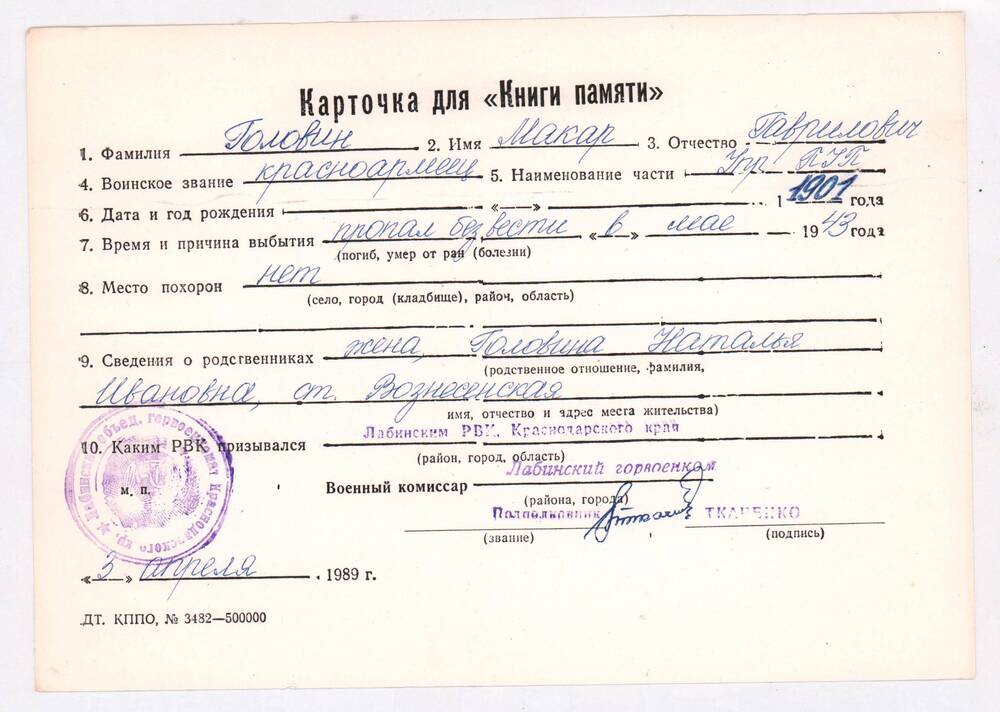 Карточка для «Книги памяти»
1. Фамилия Головин 2. Имя Макар 3. Отчество Гаврилович
4. Воинское звание красноармеец 5. Наименование части Упр ПУП
6. Дата и год рождения « — » 1901 года
7. Время и причина выбытия пропал без вести « в » мае 1943 года
(погиб, умер от ран (болезни)
8. Место похорон нет
(село, город (кладбище), район, область)
9. Сведения о родственниках жена, Головина Наталья
(родственное отношение, фамилия,
Ивановна, ст. Вознесенская
имя, отчество и адрес места жительства)
Лабинским РВК, Краснодарского края
10. Каким РВК призывался
(район, город, область)
Лабинский горвоенком
м. п.
Военный комиссар
(района, города)
Подполковник ТКАЧЕНКО
(звание) (подпись)
« 3 » апреля 1989 г.
ДТ. КППО, № 3482—500000